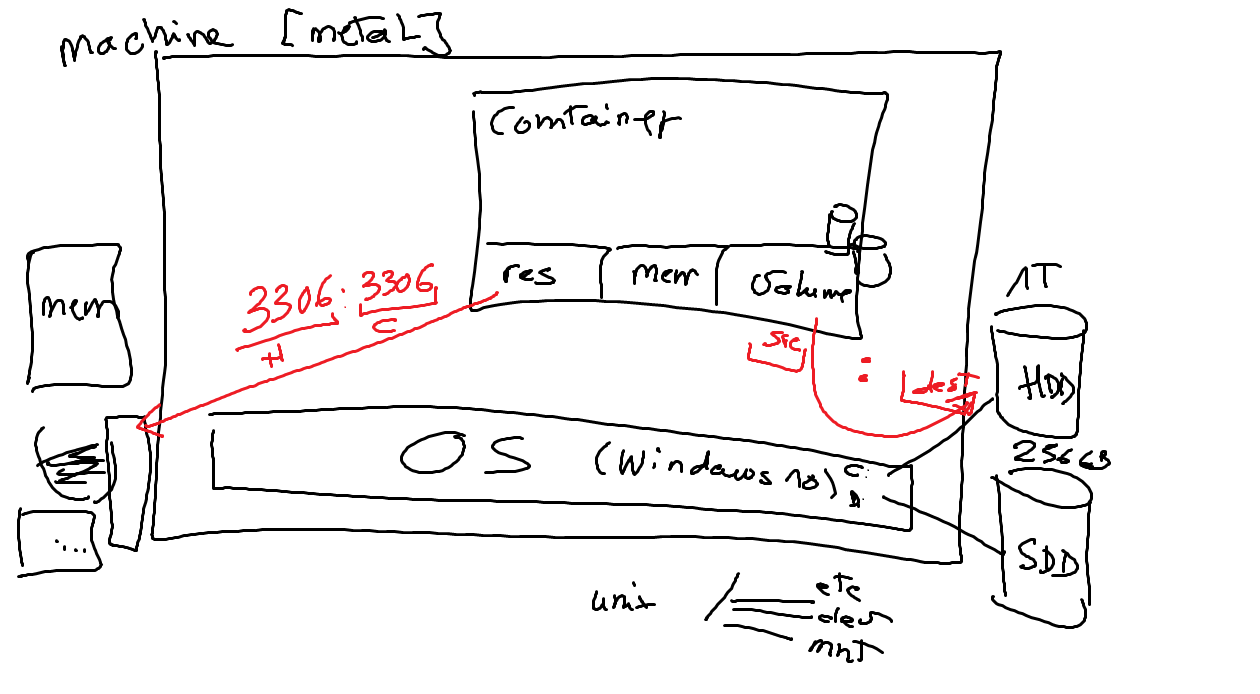 machine [metal]
Comtainer
res
mem
Volume
mem
3306 : 3306
H
C
src : dest
1T
HDD
OS (Windows 10)
C:
D:
256GB
SDD
....
unix /
etc
dev
mnt